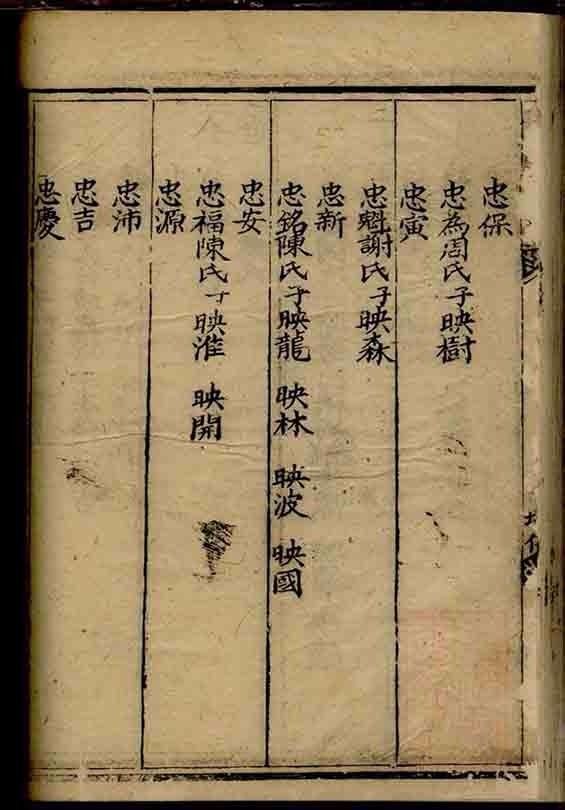 忠保
忠為周氏子映樹
忠寅
忠魁謝氏子映森
忠新
忠銘陳氏子映龍 映林 映波 映國
忠安
忠福陳氏子映淮 映開
忠源
忠沛
忠吉
忠慶